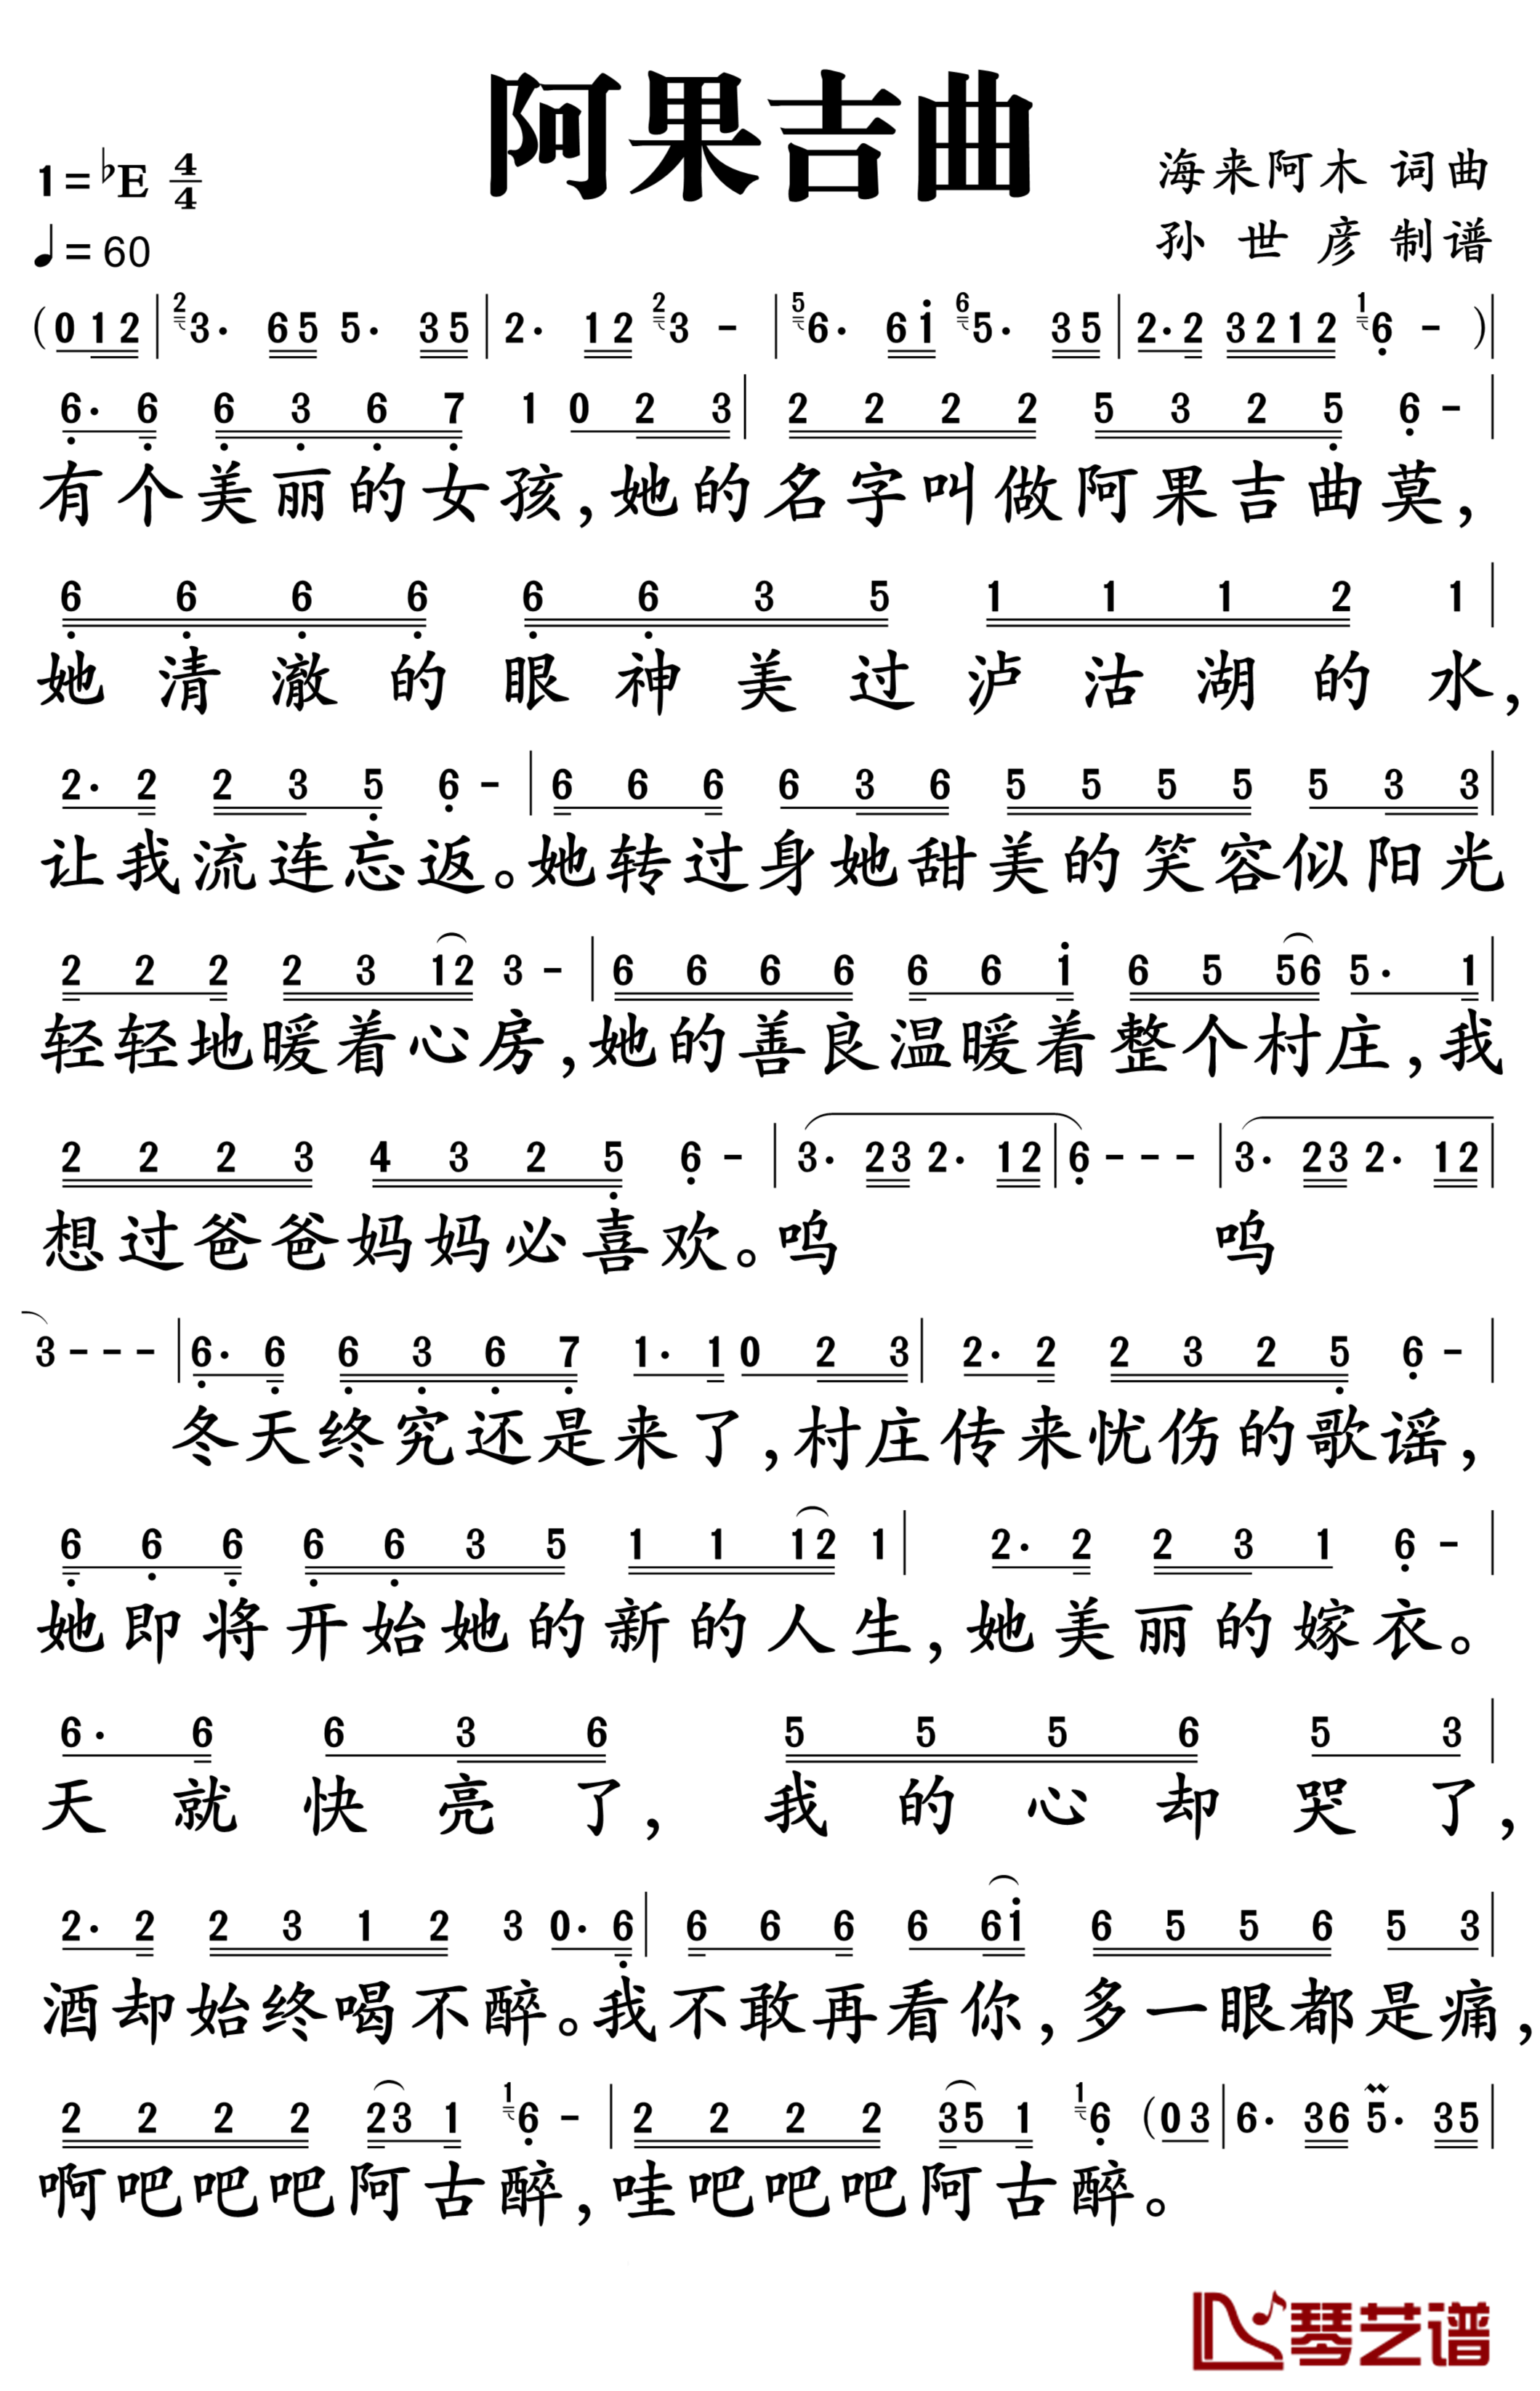 阿果吉曲
1=♭E 4/4
海来阿木 词曲
♩=60
孙世彦 制谱
(0 1 2 | 2 3· 6 5 5· 3 5 | 2· 1 2 2 3 - | 5 6· 6 1 6 5· 3 5 | 2· 2 3 2 1 2 1 6 - ) |
6· 6 6 3 6 7 1 0 2 3 | 2 2 2 2 5 3 2 5 6 - |
有个美丽的女孩,她的名字叫做阿果吉曲莫,
6 6 6 6 6 6 3 5 1 1 1 2 1 |
她清澈的眼神美过泸沽湖的水,
2· 2 2 3 5 6 - | 6 6 6 6 3 6 5 5 5 5 5 3 3 |
让我流连忘返。她转过身她甜美的笑容似阳光
2 2 2 2 3 12 3 - | 6 6 6 6 6 6 1 6 5 56 5· 1 |
轻轻地暖着心房,她的善良温暖着整个村庄,我
2 2 2 3 4 3 2 5 6 - | 3· 23 2· 12 | 6 - - - | 3· 23 2· 12 |
想过爸爸妈妈必喜欢。呜 呜
3 - - - | 6· 6 6 3 6 7 1· 1 0 2 3 | 2· 2 2 3 2 5 6 - |
冬天终究还是来了,村庄传来忧伤的歌谣,
6 6 6 6 6 3 5 1 1 12 1 | 2· 2 2 3 1 6 - |
她即将开始她的新的人生,她美丽的嫁衣。
6· 6 6 3 6 5 5 5 6 5 3 |
天就快亮了,我的心却哭了,
2· 2 2 3 1 2 3 0· 6 | 6 6 6 6 61 6 5 5 6 5 3 |
酒却始终喝不醉。我不敢再看你,多一眼都是痛,
2 2 2 2 23 1 1 6 - | 2 2 2 2 35 1 1 6 (0 3 | 6· 36 5· 35 |
啊吧吧吧阿古醉,哇吧吧吧阿古醉。
琴艺谱